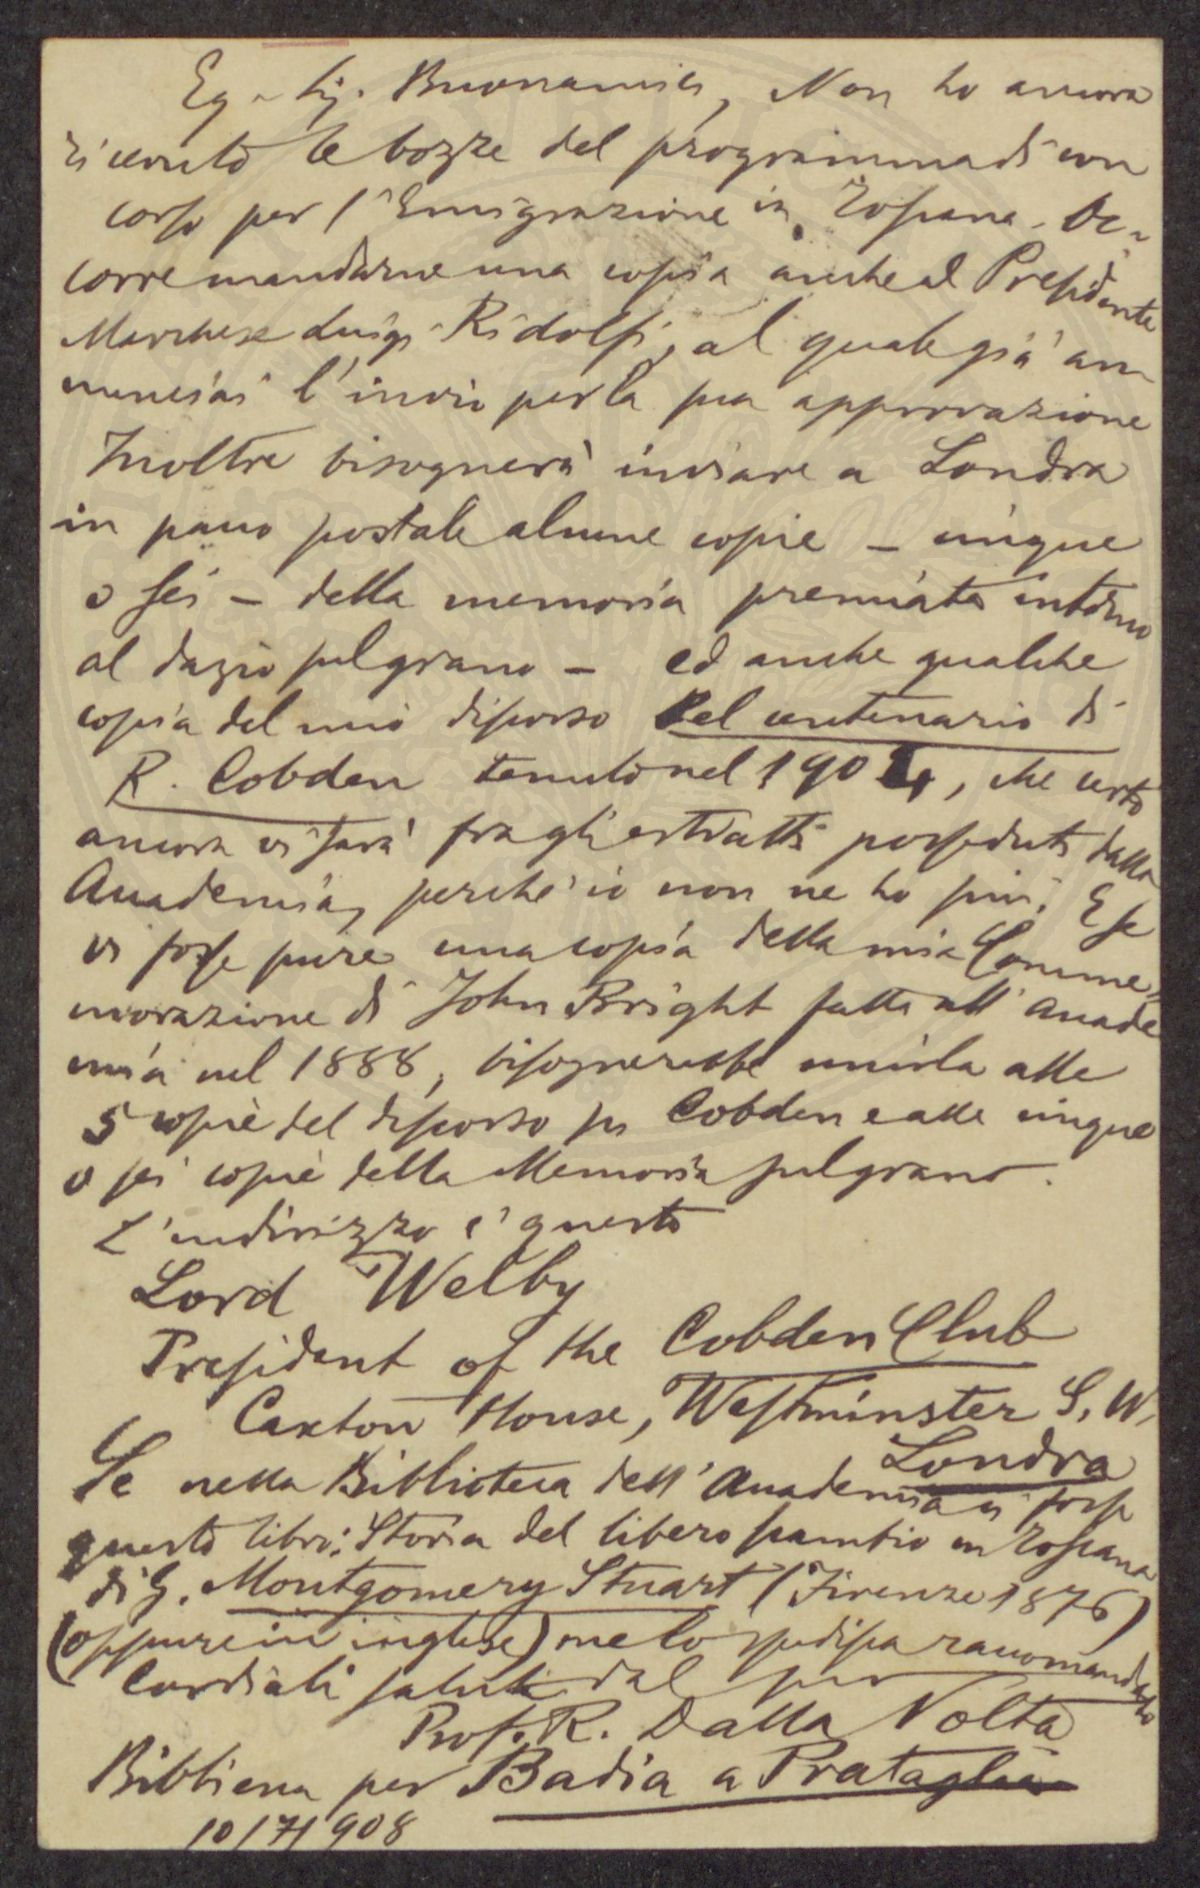 Eg. Sig. Buonamici, Non ho ancora
ricevuto le bozze del programma di con
corso per l'Emigrazione in Toscana. Oc-
corre mandarne una copia anche al Presidente
Marchese Luigi Ridolfi, al quale già an
nunciai l'invio per la sua approvazione
Inoltre bisognerà inviare a Londra
in pacco postale alcune copie – cinque
o sei – della memoria premiata intorno
al dazio sul grano – ed anche qualche
copia del mio discorso Pel centenario di
R. Cobden tenuto nel 1904, che certo
ancora vi sarà fra gli estratti posseduti dalla
Accademia, perché io non ne ho più. E se
vi fosse pure una copia della mia Comme-
morazione di John Bright fatta all'Accade
mia nel 1888, bisognerebbe unirla alle
5 copie del discorso su Cobden e alle cinque
o sei copie della Memoria sul grano.
L'indirizzo è questo
Lord Welby
President of the Cobden Club
Caxton House, Westminster S. W.
Londra
Se nella Biblioteca dell'Accademia vi fosse
questo libro: Storia del libero scambio in Toscana
di G. Montgomery Stuart (Firenze 1876)
(oppure in inglese) me lo spedisca raccomandato
Cordiali saluti dal suo
Prof. R. Dalla Volta
Bibbiena per Badia a Prataglia
10/7/908